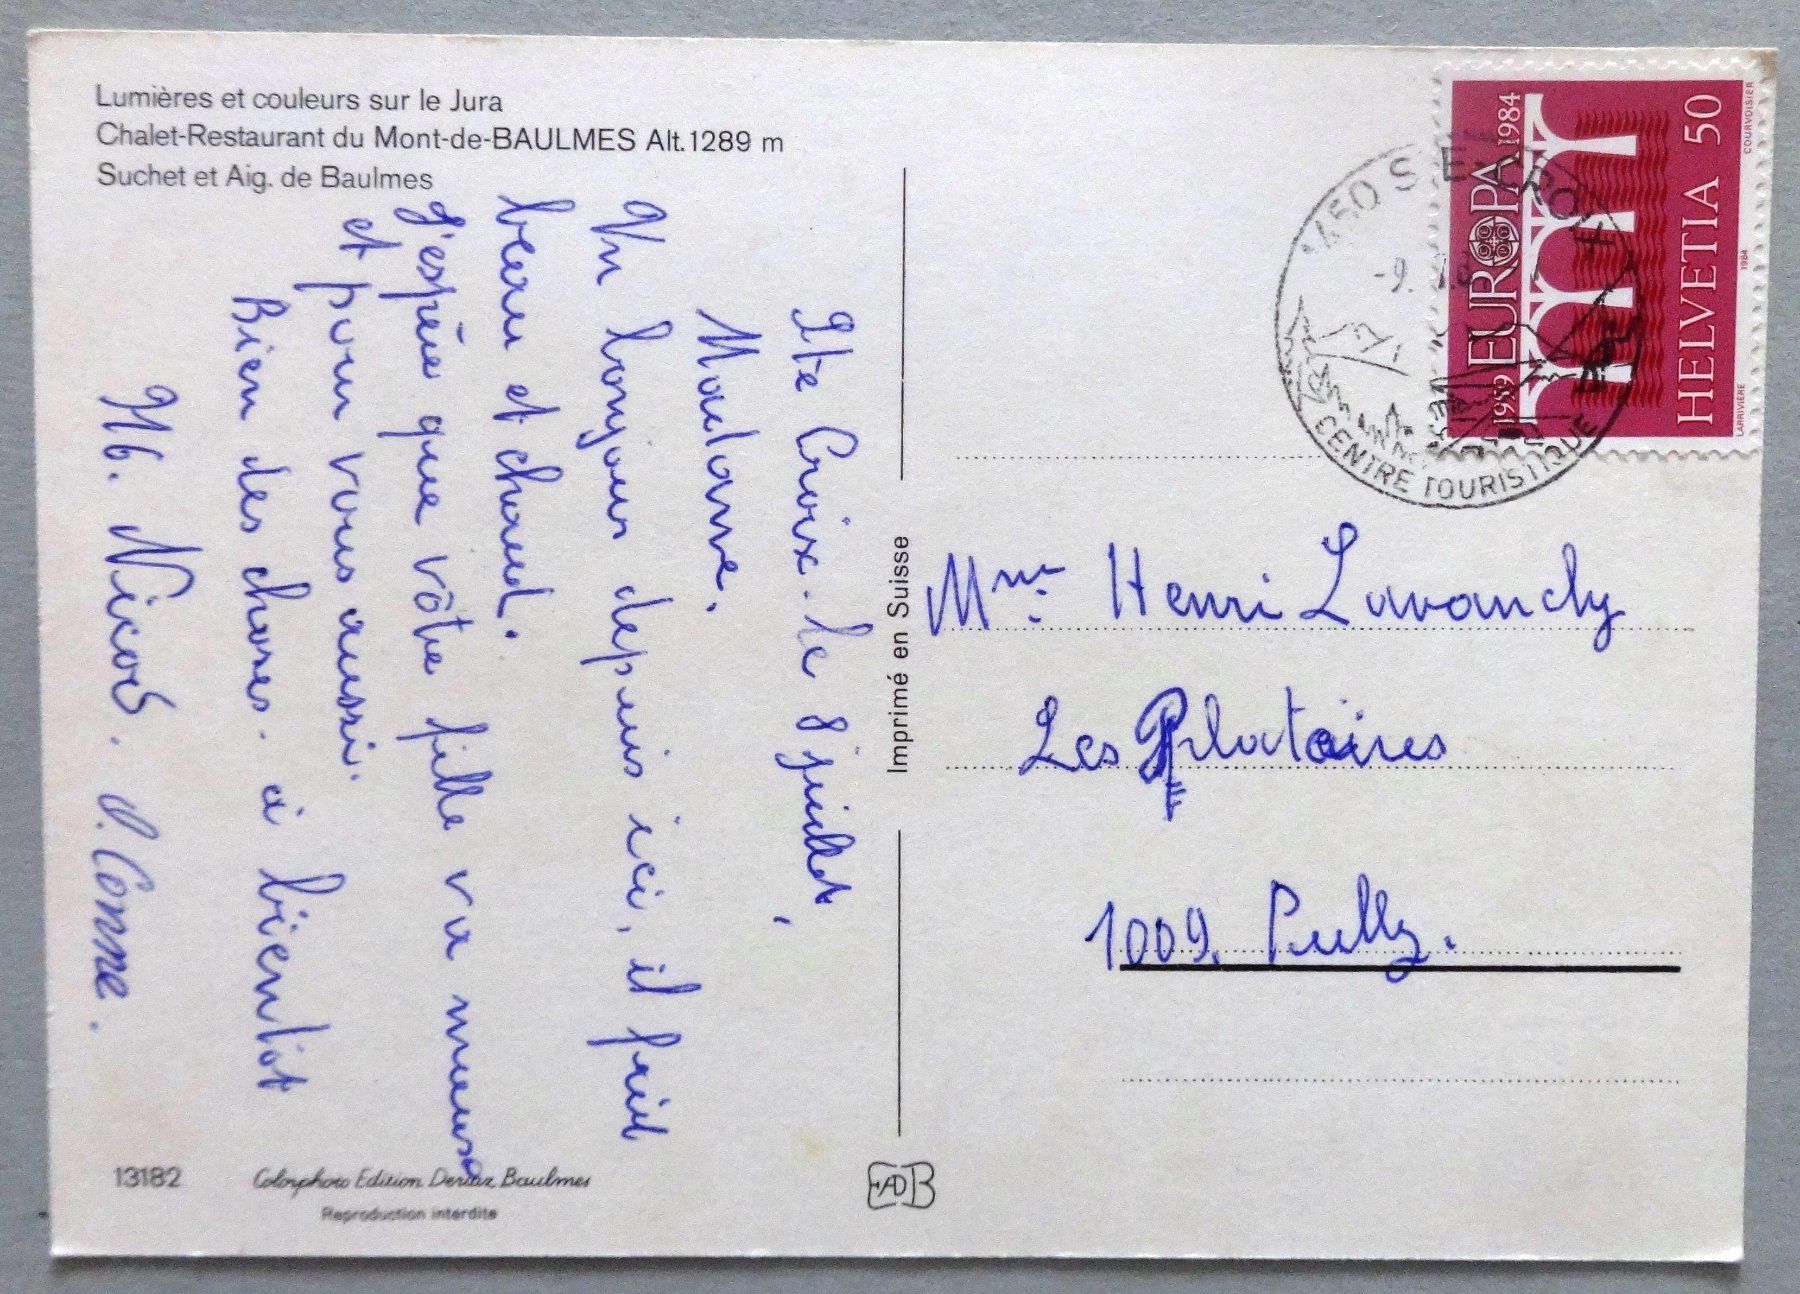 Lumières et couleurs sur le Jura
Chalet-Restaurant du Mont-de-BAULMES Alt. 1289 m
Suchet et Aig. de Baulmes
Ste Croix. le 8 juillet,
Madame,
Un bonjour depuis ici, il fait
beau et chaud.
J'espère que vôtre fille va mieux
et pour vous aussi.
Bien des choses. à bientôt
Mb. Nicod. D. Conne.
13182
Colorphoto Edition Deriaz Baulmes
Reproduction interdite
Imprimé en Suisse
EADB
1450 STE-CROIX
-9.
CENTRE TOURISTIQUE
1959 EUROPA 1984
HELVETIA 50
COURVOISIER
1984
LARRIVIÈRE
Mme. Henri Lavanchy
Les Plataires
1009. Pully.